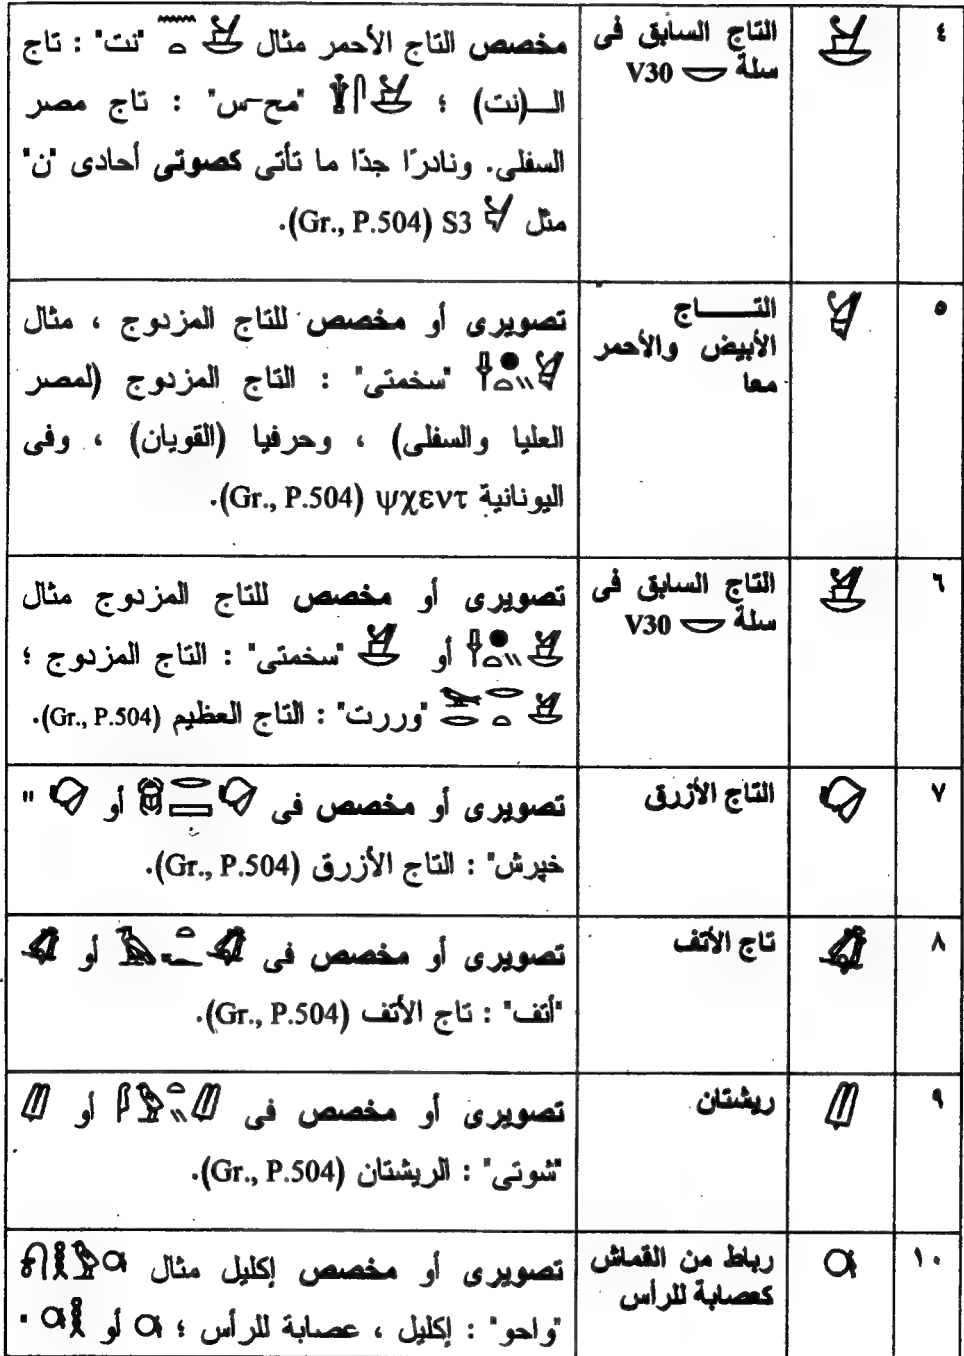 ٤ التاج السابق فى مخصص التاج الأحمر مثال "نت" : تاج
سلة V30 الـــ(نت) ؛ "مح-س" : تاج مصر
السفلى. ونادرًا جدًا ما تأتى كصوتى أحادى "ن"
مثل S3 (Gr., P.504).
٥ التــــــاج تصويرى أو مخصص للتاج المزدوج ، مثال
الأبيض والأحمر "سخمتى" : التاج المزدوج (لمصر
معا العليا والسفلى) ، وحرفيا (القويان) ، وفى
اليونانية ψχεντ (Gr., P.504).
٦ التاج السابق فى تصويرى أو مخصص للتاج المزدوج مثال
سلة V30 أو "سخمتى" : التاج المزدوج ؛
"وررت" : التاج العظيم (Gr., P.504).
٧ التاج الأزرق تصويرى أو مخصص فى أو "
خپرش" : التاج الأزرق (Gr., P.504).
٨ تاج الأتف تصويرى أو مخصص فى أو
"أتف" : تاج الأتف (Gr., P.504).
٩ ريشتان تصويرى أو مخصص فى أو
"شوتى" : الريشتان (Gr., P.504).
١٠ رباط من القماش تصويرى أو مخصص إكليل مثال
كعصابة للرأس "واحو" : إكليل ، عصابة للرأس ؛ أو "